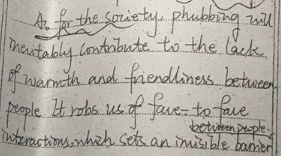 As for the society, phubbing will
inevitably contribute to the lack
of warmth and friendliness between
people It robs us of face-to face
between people
interactions, which sets an invisible barrier